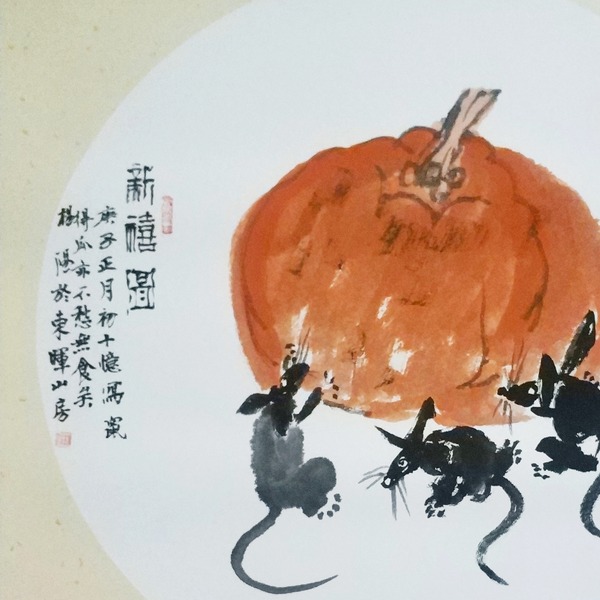 新禧图
庚子正月初十憶寫鼠
得瓜亦不愁無食矣
楊陽於東暉山房